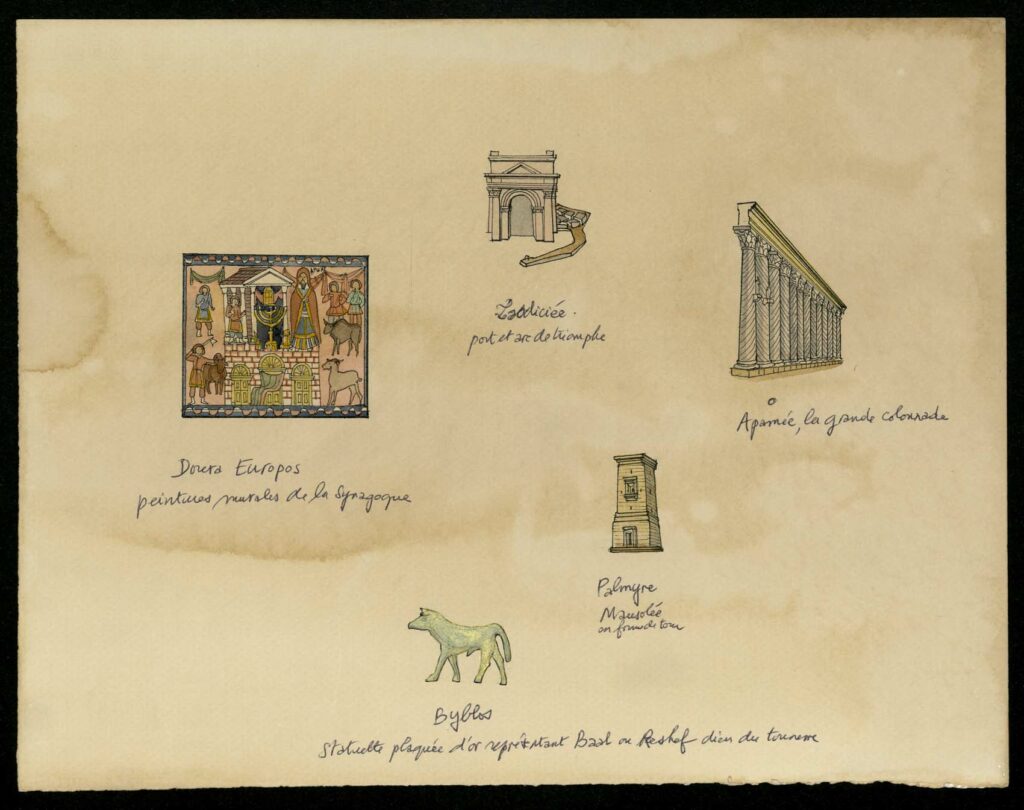 Laodiciée.
port et arc de triomphe
Apamée, la grande colonnade
Doura Europos
peintures murales de la Synagogue
Palmyre
Mausolée
en forme de tour
Byblos
Statuette plaquée d'or représentant Baal ou Reshef dieu du tonnerre